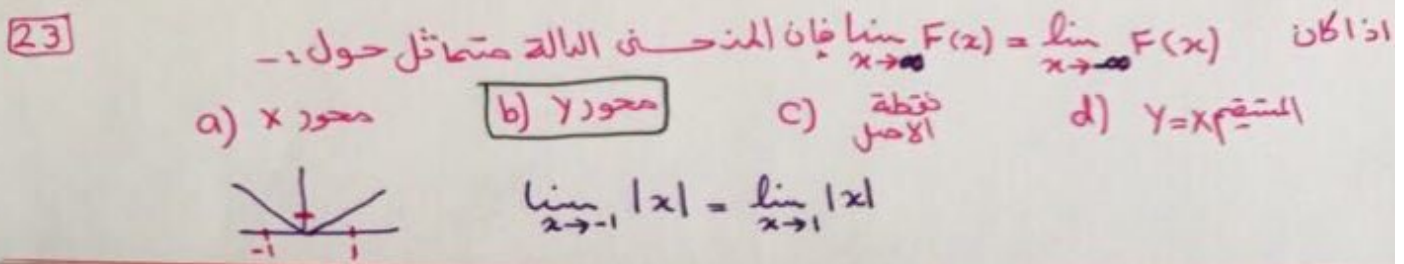 23
اذا كان lim x→∞ F(x) = lim x→-∞ F(x) فإن المنحنى الدالة متماثل حول :-
a) محور x b) محور y c) نقطة الاصل d) المستقيم y=x
lim x→-1 |x| = lim x→1 |x|
-1 1